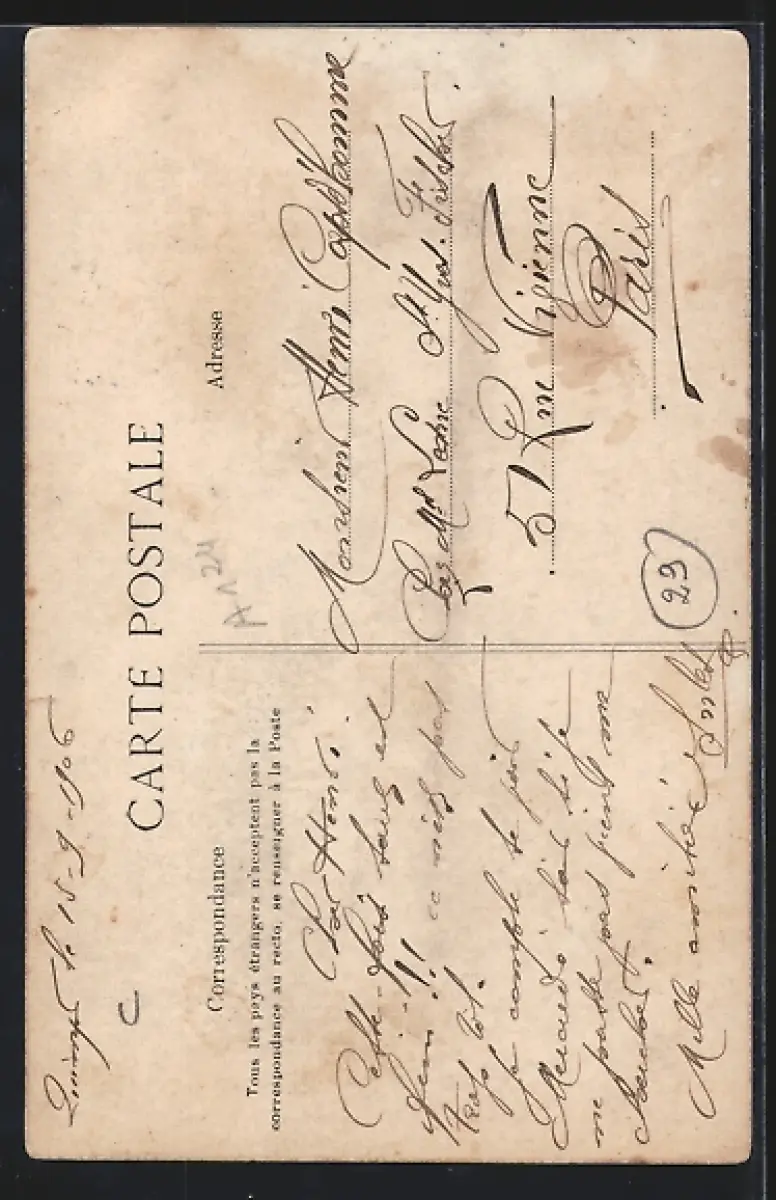 le 15-9-1906
C
CARTE POSTALE
Correspondance
Tous les pays étrangers n'acceptent pas la
correspondance au recto, se renseigner à la Poste
Cher Henri.
Cette fois tout est
fini!!! ce n'est pas
trop tôt.
Je compte te
Mercredi soir si je
ne pas
Mille amitiés
A124
Adresse
Monsieur Henri
Chez Mrs St Yves. Fischer.
51 Rue Vivienne
Paris
23